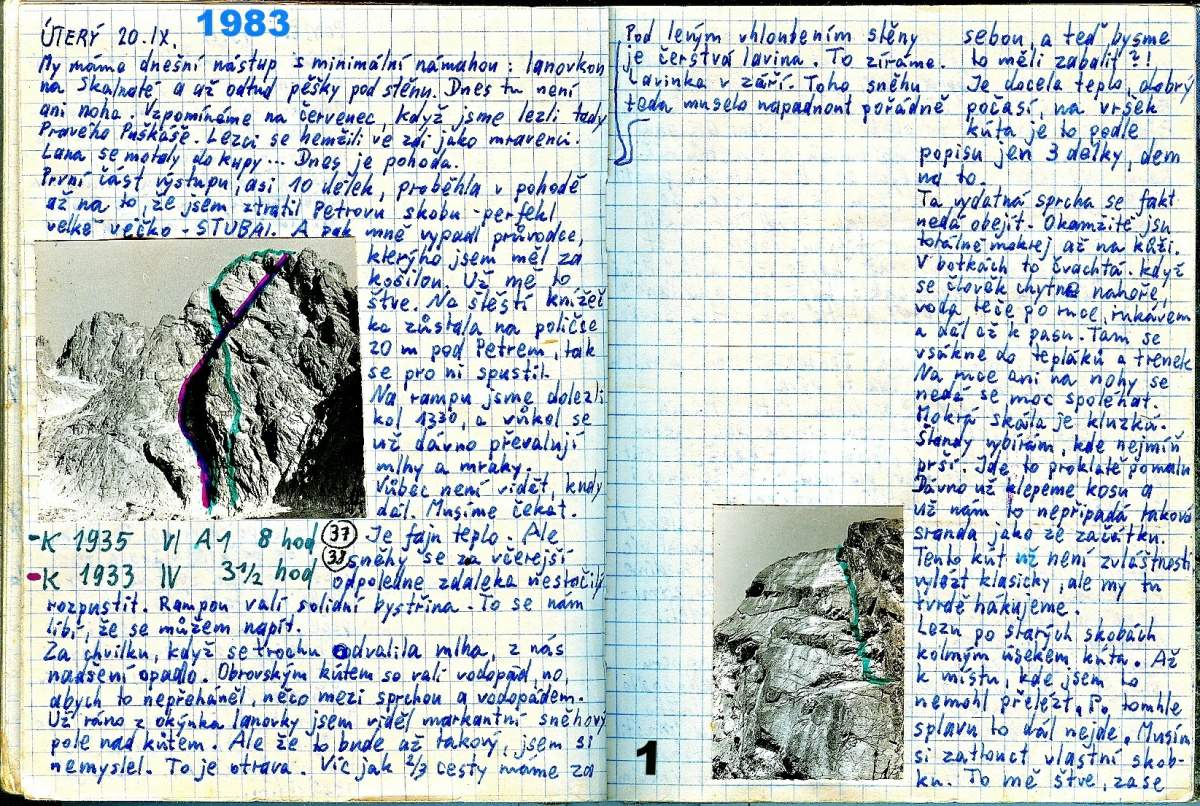 1983
ÚTERÝ 20.IX.
My máme dnešní nástup s minimální námahou: lanovkou
na Skalnaté a až odtud pěšky pod stěnu. Dnes tu není
ani noha. Vzpomínáme na červenec, když jsme lezli tady
Pravého Puškáše. Lezci se hemžili ve zdi jako mravenci.
Lana se motaly do kupy... Dnes je pohoda.
První část výstupu, asi 10 délek, proběhla v pohodě
až na to, že jsem ztratil Petrovu skobu - perfekt
velké véčko - STUBAI. A pak mně vypadl průvodce,
kterýho jsem měl za
košilou. Už mě to
štve. Na štěstí knížeč
ka zůstala na poličce
20 m pod Petrem, tak
se pro ni spustil.
Na rampu jsme dolezli
kol 1330, a vůkol se
už dávno převalují
mlhy a mraky.
Vůbec není vidět, kudy
dál. Musíme čekat.
-K 1935 VI A1 8 hod 37
-K 1933 IV 3 1/2 hod 38
Je fajn teplo. Ale
sněhy se za včerejší
odpoledne zdaleka nestačily
rozpustit. Rampou valí solidní bystřina. To se nám
líbí, že se můžem napít.
Za chvilku, když se trochu odvalila mlha, z nás
nadšení opadlo. Obrovským kútem se valí vodopád, no,
abych to nepřeháněl, něco mezi sprchou a vodopádem.
Už ráno z okýnka lanovky jsem viděl markantní sněhový
pole nad kútem. Ale že to bude až takový, jsem si
nemyslel. To je otrava. Víc jak 2/3 cesty máme za
Pod levým vhloubením stěny
je čerstvá lavina. To zíráme.
Lavinka v září. Toho sněhu
teda muselo napadnout pořádně
1
sebou, a teď bysme
to měli zabalit?!
Je docela teplo, dobrý
počasí, na vršek
kúta je to podle
popisu jen 3 délky, dem
na to.
Ta vydatná sprcha se fakt
nedá obejít. Okamžitě jsu
totálně mokrej až na kůži.
V botkách to čvachtá. Když
se člověk chytne nahoře,
voda teče po ruce, rukávem
a dál až k pasu. Tam se
vsákne do tepláků a trenek
Na ruce ani na nohy se
nedá se moc spoléhat.
Mokrá skála je kluzká.
Štandy vybírám, kde nejmíň
prší. Jde to proklatě pomalu
Dávno už klepeme kosu a
už nám to nepřipadá taková
sranda jako ze začátku.
Tento kút už není zvláštností
vylézt klasicky, ale my tu
tvrdě hákujeme.
Lezu po starých skobách
kolmým úsekem kúta. Až
k místu, kde jsem to
nemohl přelézt. Po tomhle
splavu to dál nejde. Musím
si zatlouct vlastní skob-
ku. To mě štve, zase